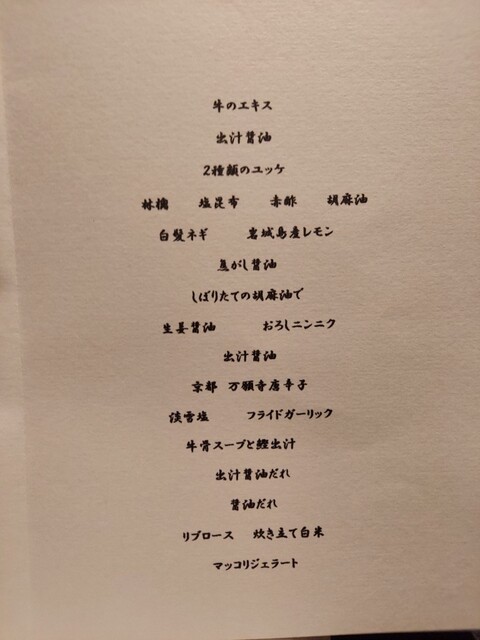 牛のエキス
出汁醤油
2種類のユッケ
林檎 塩昆布 赤酢 胡麻油
白髪ネギ 岩城島産レモン
焦がし醤油
しぼりたての胡麻油で
生姜醤油 おろしニンニク
出汁醤油
京都 万願寺唐辛子
淡雪塩 フライドガーリック
牛骨スープと鰹出汁
出汁醤油だれ
醤油だれ
リブロース 炊き立て白米
マッコリジェラート